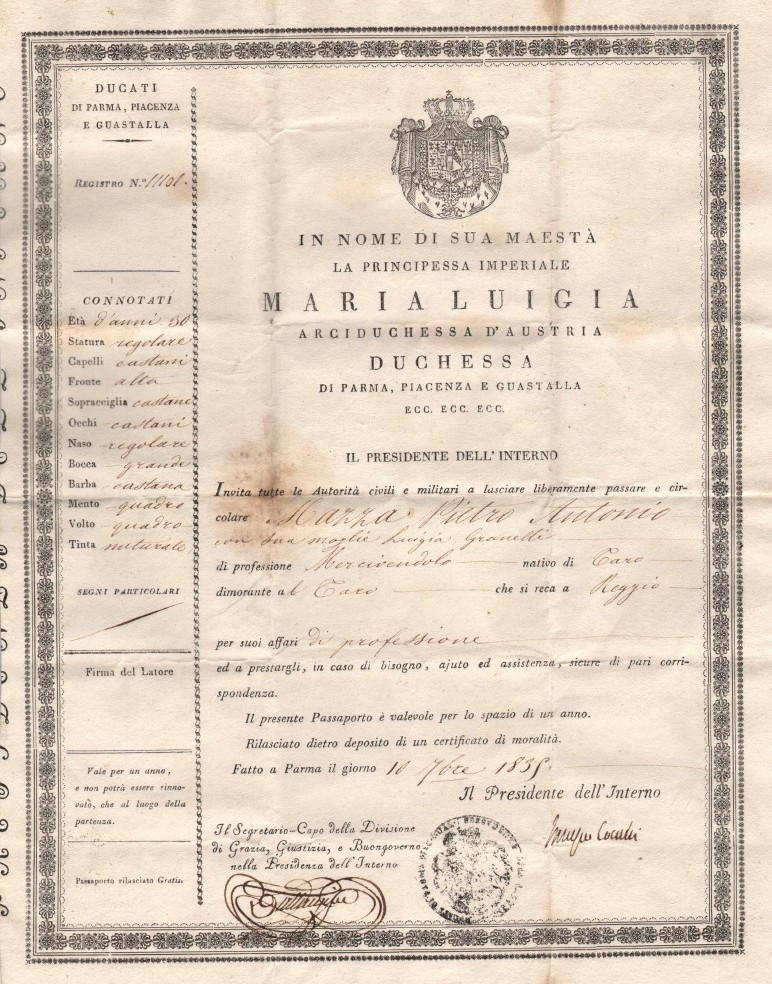 DUCATI
DI PARMA, PIACENZA
E GUASTALLA
REGISTRO N.º
CONNOTATI
Età d'anni 50
Statura regolare
Capelli castani
Fronte alta
Sopracciglia castane
Occhi castani
Naso regolare
Bocca grande
Barba castana
Mento quadro
Volto quadro
Tinta naturale
SEGNI PARTICOLARI
Firma del Latore
Vale per un anno,
e non potrà essere rinno-
vato, che al luogo della
partenza.
Passaporto rilasciato Gratis.
IN NOME DI SUA MAESTÀ
LA PRINCIPESSA IMPERIALE
MARIA LUIGIA
ARCIDUCHESSA D'AUSTRIA
DUCHESSA
DI PARMA, PIACENZA E GUASTALLA
ECC. ECC. ECC.
IL PRESIDENTE DELL'INTERNO
Invita tutte le Autorità civili e militari a lasciare liberamente passare e cir-
colare Mazza Pietro Antonio
con sua moglie Luigia Granelli
di professione Mercivendolo nativo di Taro
dimorante al Taro che si reca a Reggio
per suoi affari di professione
ed a prestargli, in caso di bisogno, ajuto ed assistenza, sicure di pari corri-
spondenza.
Il presente Passaporto è valevole per lo spazio di un anno.
Rilasciato dietro deposito di un certificato di moralità.
Fatto a Parma il giorno 10 7bre 1835
Il Presidente dell'Interno
Il Segretario-Capo della Divisione
di Grazia, Giustizia, e Buongoverno
nella Presidenza dell'Interno